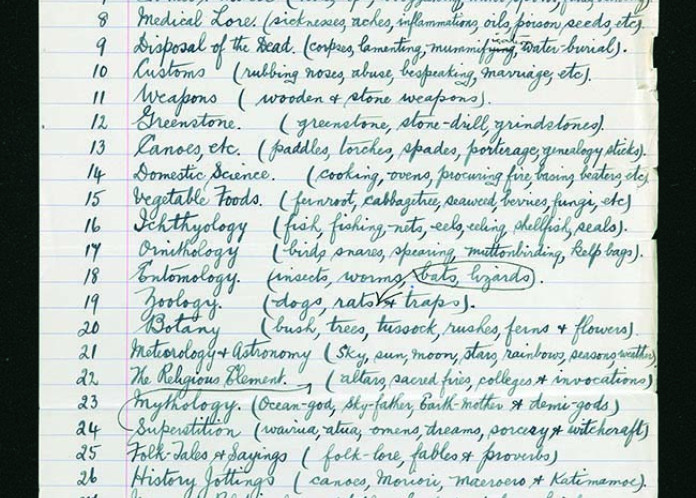 8 Medical Lore. (sicknesses, aches, inflammations, oils, poison seeds, etc)
9 Disposal of the Dead. (corpses, lamenting, mummifying, water-burial).
10 Customs (rubbing noses, abuse, bespeaking, marriage, etc).
11 Weapons (wooden & stone weapons).
12 Greenstone. (greenstone, stone-drill, grindstones).
13 Canoes, etc. (paddles, torches, spades, porterage, genealogy sticks).
14 Domestic Science. (cooking, ovens, procuring fire, basins, beaters, etc)
15 Vegetable Foods. (fernroot, cabbagetree, seaweed, berries, fungi, etc)
16 Ichthyology (fish, fishing-nets, -eels, eeling, shellfish, seals).
17 Ornithology (birds, snares, spearing, muttonbirding, kelp bags).
18 Entomology. (insects, worms, bats, lizards).
19 Zoology. (dogs, rats & traps).
20 Botany (bush, trees, tussock, rushes, ferns & flowers).
21 Meteorology & Astronomy (Sky, sun, moon, stars, rainbows, seasons, weather)
22 The Religious Element. (altars, sacred fires, colleges & invocations)
23 Mythology. (Ocean-god, sky-father, Earth-Mother & demi-gods)
24 Superstition (wairua, atua, omens, dreams, sorcery & witchcraft)
25 Folk-Tales & Sayings (folk-lore, fables & proverbs)
26 History Jottings (canoes, Moriori, maeroero, & Katimamoe).